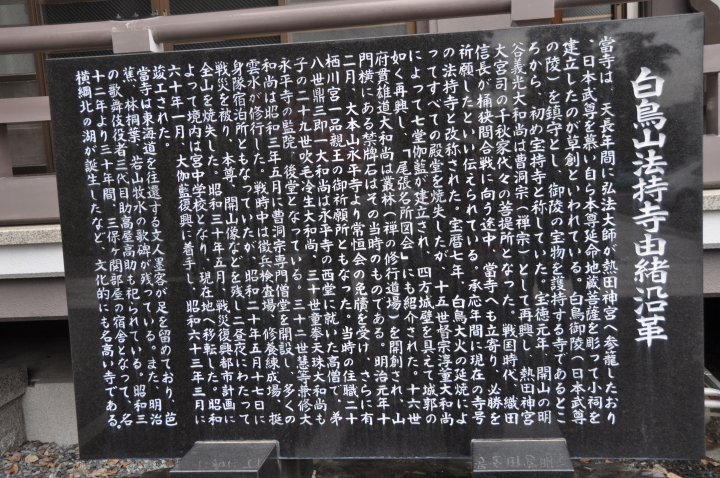 白鳥山法持寺由緒沿革
當寺は、天長年間に弘法大師が熱田神宮へ参籠したおり
日本武尊を慕い自ら本尊延命地蔵菩薩を彫って小祠を
建立したのが草創といわれている。白鳥御陵(日本武尊
の陵)を鎮守とし、御陵の宝物を護持する寺であるとこ
ろから、初め宝持寺と称していた。宝徳元年、開山の明
谷義光大和尚は曹洞宗(禅宗)として再興し、熱田神宮
大宮司の千秋家代々の菩提所となった。戦国時代、織田
信長が桶狭間合戦に向う途中、當寺へも立寄り、必勝を
祈願したといい伝えられている。承応年間に現在の寺号
の法持寺と改称された。宝暦七年、白鳥大火の延焼によ
ってすべての殿堂を焼失したが、十五世督宗淳董大和尚
によって七堂伽藍が建立され、四方城壁を具えて城郭の
如く再興し、「尾張名所図会」にも紹介された。十六世
府貫雄道大和尚は叢林(禅の修行道場)を開創され、山
門横にある禁牌石はその当時のものである。明治元年十
二月、大本山永平寺より常恒会の免牘を受け、さらに有
栖川宮一品親王の御祈願所ともなった。当時の住職二十
八世鼎三即一大和尚は永平寺の西堂に就いた高僧で、弟
子の二十九世吹毛冷生大和尚、三十世童拳天珠大和尚も
永平寺の監院、後堂となっている。三十二世慧等兼修大
和尚は昭和三年五月に曹洞宗専門僧堂を開設し、多くの
雲水が修行した。戦時中は徴兵検査場、修養練成場、挺
身隊宿泊所ともなっていたが、昭和二十年五月十七日に
戦災を被り、本尊、開山像などを残し二昼夜にわたって
全山を焼失した。昭和三十年五月、戦災復興都市計画に
よって境内は宮中学校となり、現在地へ移転した。昭和
六十年一月、大伽藍復興に着手し、昭和六十三年三月に
竣工された。
當寺は東海道を往還する文人墨客が足を留めており、芭
蕉、林桐葉、若山牧水の歌碑が残っている。また、明治
の歌舞伎役者三代目助高屋高助も祀られている。昭和三
十二年より三十年間、三保ヶ関部屋の宿舎となって、名
横綱北の湖が誕生したなど、文化的にも名高い寺である。